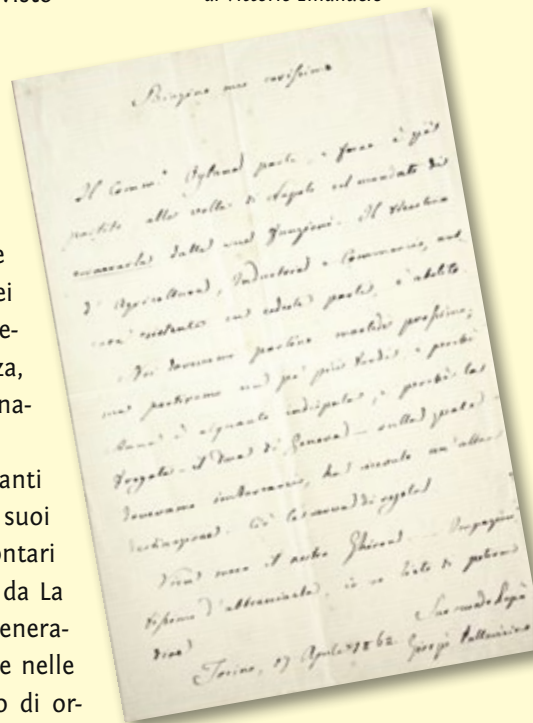 visto
di Vittorio Emanuele
e
ei
e-
za,
na-
anti
suoi
ontari
da La
enera-
e nelle
o di or-
mio carissimo
Il Comm.r parte, e forse è già
partito alla volta di Napoli col mandato di
dalle sue funzioni. Il
d'Agricoltura, Industria e Commercio,
parte, è abolito.
Noi dovevamo partire martedì prossimo;
ma partiremo un po' più tardi, e perché
Anna è alquanto indisposta, e perché la
Fregata - il Duca di Genova - sulla quale
dovevamo imbarcarci, ha ricevuto un'altra
destinazione. Ciò le serva di regola.
meco il nostro Impazien
tissimo d'abbracciarla, io lieto di potermi
dire
Suo Papà
Torino, 17 Aprile 1862. Giorgio Pallavicino